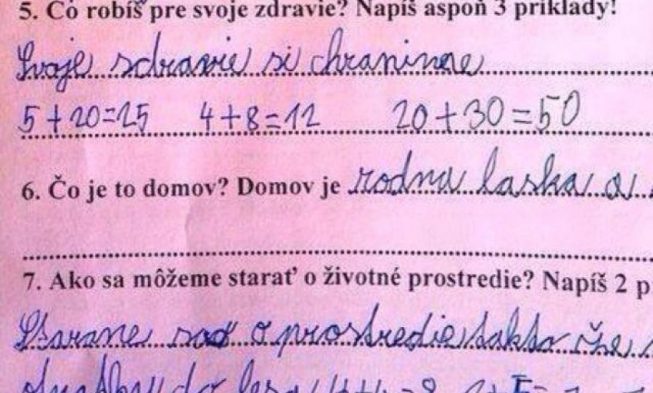 5. Čo robíš pre svoje zdravie? Napíš aspoň 3 príklady!
Svoje sdravie si chranime
5+20=25 4+8=12 20+30=50
6. Čo je to domov? Domov je rodna laska a
7. Ako sa môžeme starať o životné prostredie? Napíš 2 p
Starame sa o prostredie takto že
do lesa